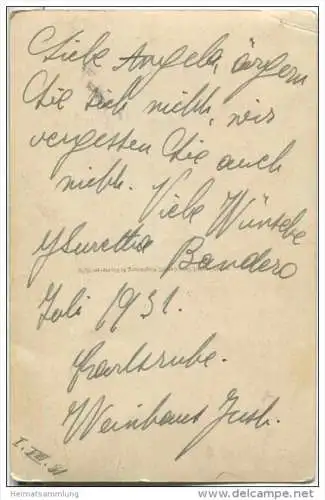 Liebe Angela, ärgern
Sie sich nicht, wir
vergessen Sie auch
nicht. Viele Wünsche
Bandero
Juli 1931.
Karlsruhe.
Weinhaus Just.
I. VIII. 31
© Heimatsammlung
www.ansichtskarten-center.de